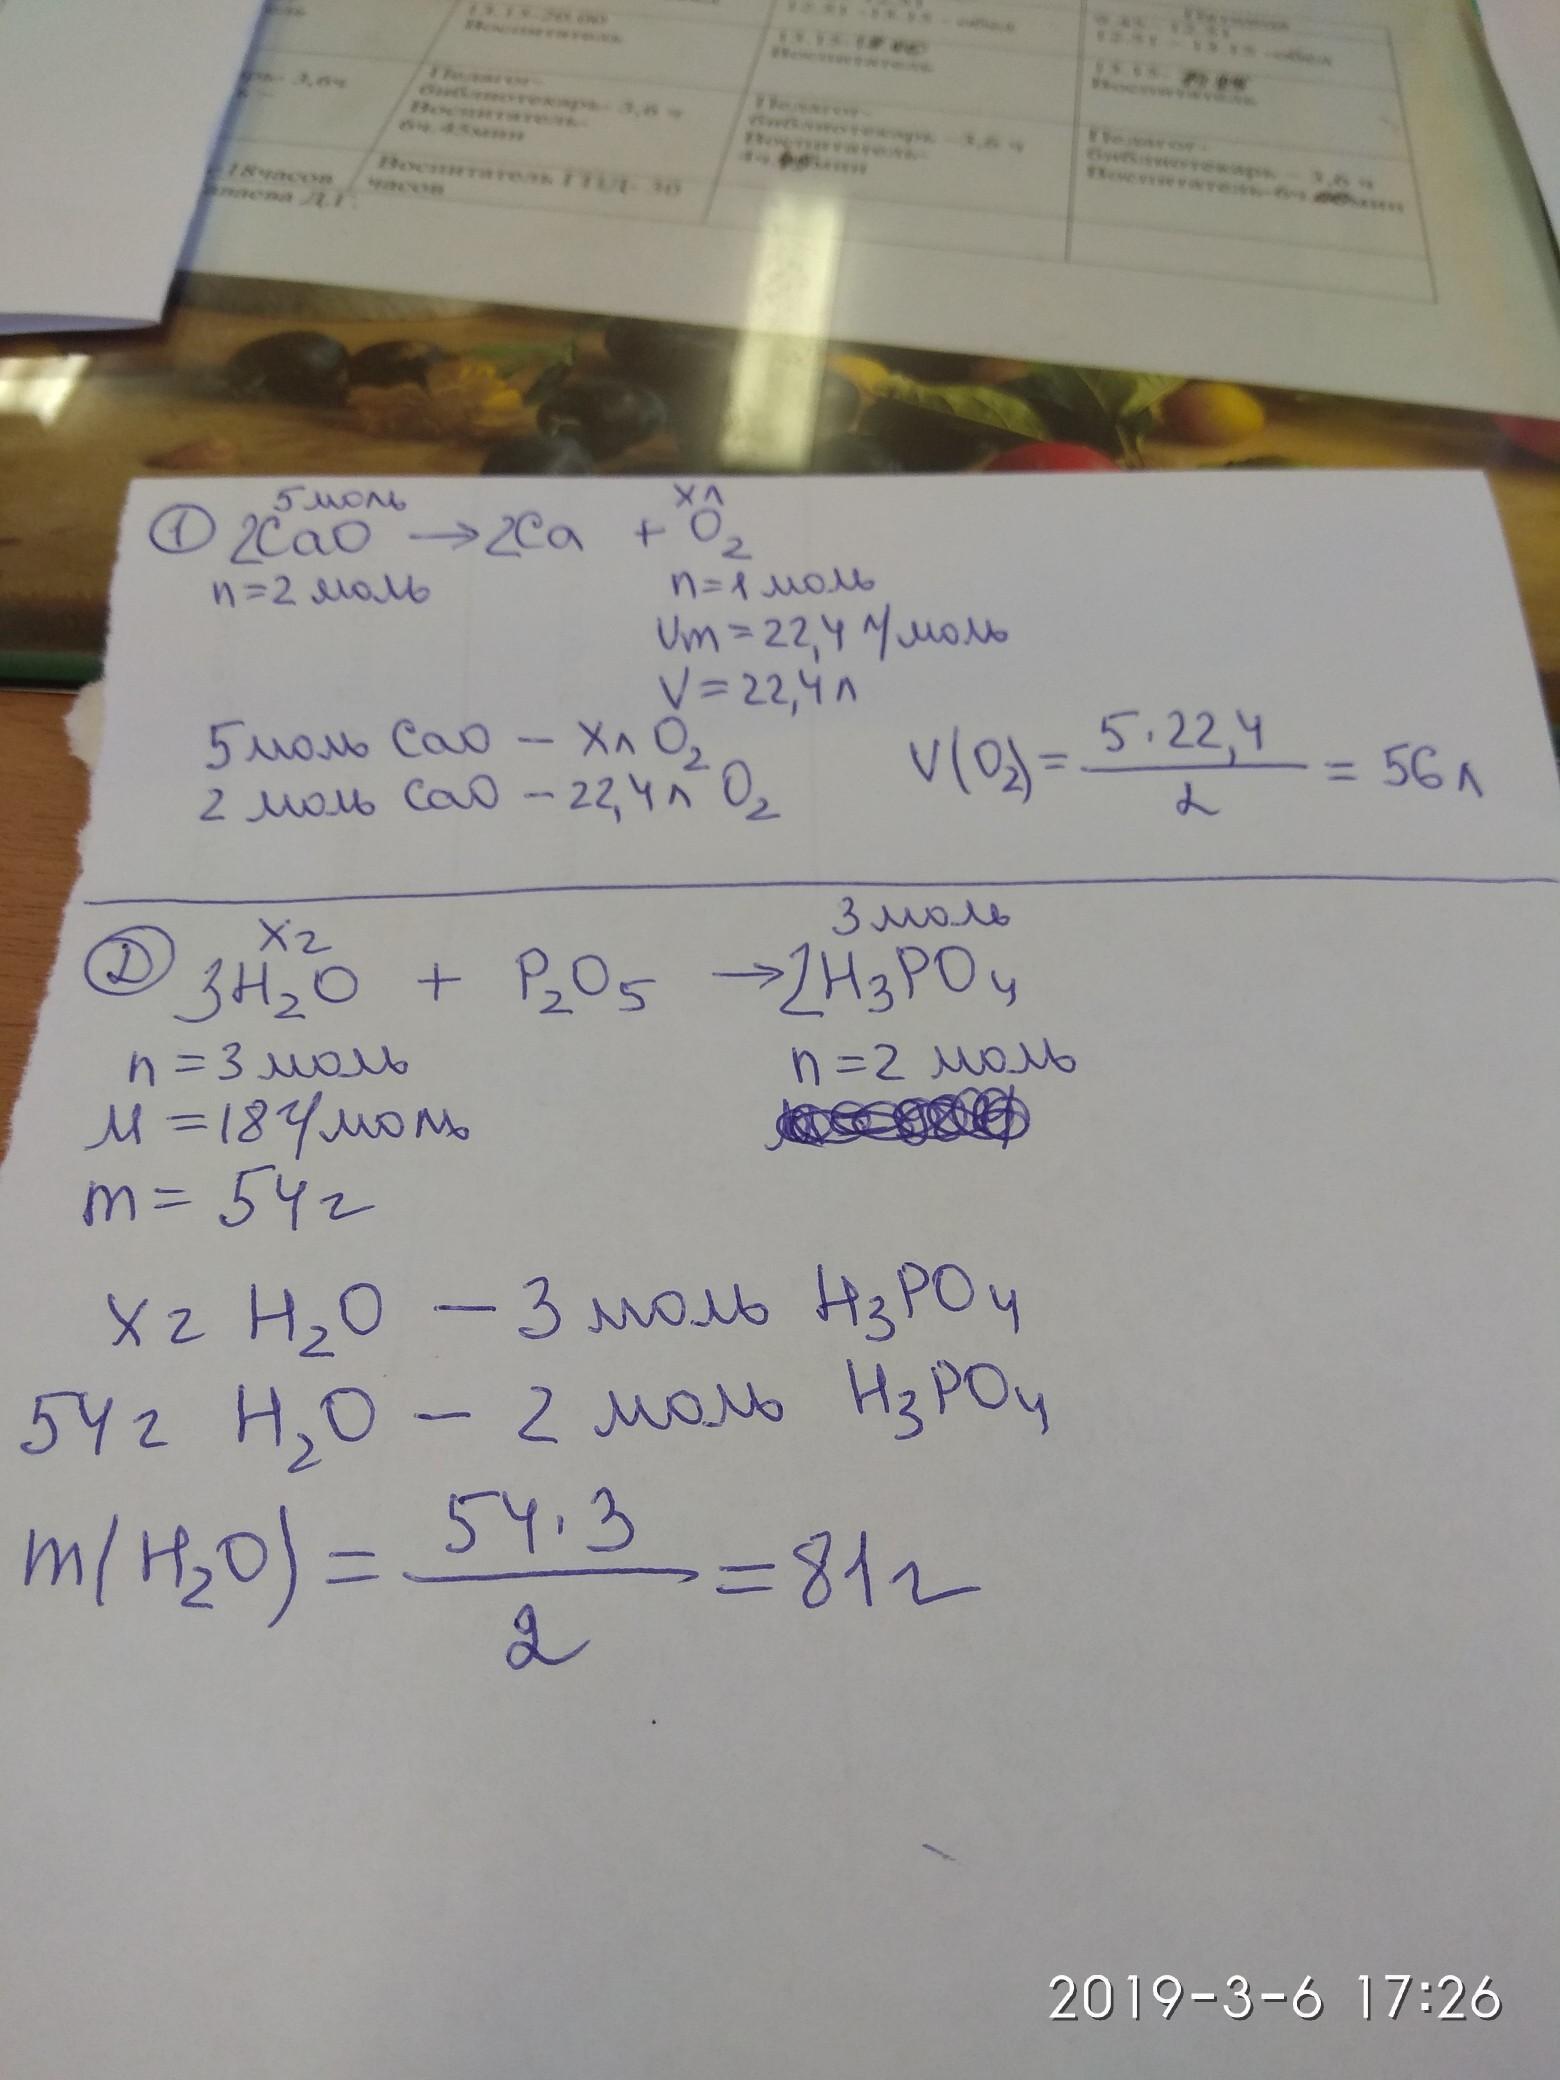 13.15-20.00
12.51 -13.15 - обед
Пятница
Воспитатель
13.15-
9.45 - 12.51
Воспитатель
12.51 - 13.15 -обед
13.15-
Воспитатель
3,6ч
Педагог-
библиотекарь- 3,6 ч
Воспитатель-
6ч.45мин
Педагог-
библиотекарь -3,6 ч
Воспитатель-
4ч. мин
Педагог-
библиотекарь - 3,6 ч
Воспитатель-6ч. мин
18часов
Воспитатель ГПД- 30
часов
① 5 моль x л
2CaO → 2Ca + O₂
n = 2 моль n = 1 моль
Vm = 22,4 л/моль
V = 22,4 л
5 моль CaO - x л O₂
2 моль CaO - 22,4 л O₂
V(O₂) = 5·22,4 / 2 = 56 л
② x г 3 моль
3H₂O + P₂O₅ → 2H₃PO₄
n = 3 моль n = 2 моль
M = 18 г/моль
m = 54 г
x г H₂O - 3 моль H₃PO₄
54 г H₂O - 2 моль H₃PO₄
m(H₂O) = 54·3 / 2 = 81 г
2019-3-6 17:26